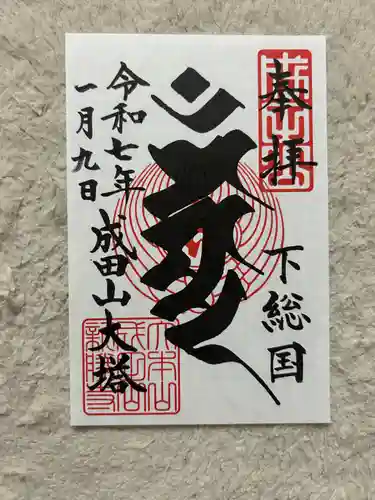 奉拝
下総国
成田山大塔
令和七年
一月九日